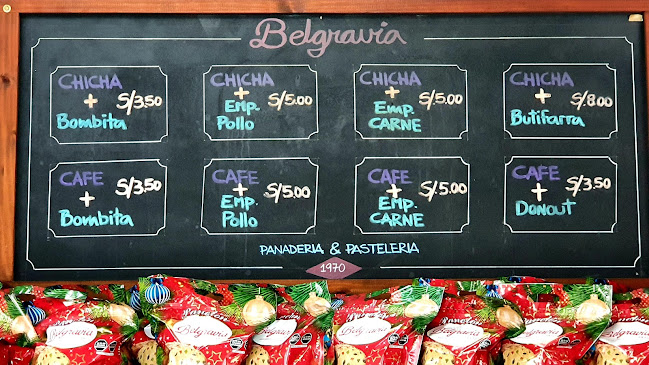 Belgravia
CHICHA
+
Bombita
S/3.50
CHICHA
+
Emp.
Pollo
S/5.00
CHICHA
+
Emp.
CARNE
S/5.00
CHICHA
+
Butifarra
S/8.00
CAFE
+
Bombita
S/3.50
CAFE
+
Emp.
Pollo
S/5.00
CAFE
+
Emp.
CARNE
S/5.00
CAFE
+
Donaut
S/3.50
PANADERIA & PASTELERIA
1970
Belgravia
Belgravia
Belgravia
Belgravia